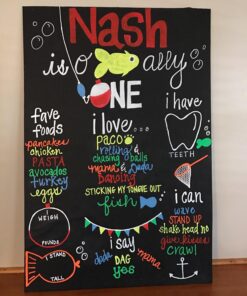 Nash
is o ally
ONE
fave
foods
pancakes
chicken
PASTA
avocados
turkey
eggs
i love...
PACO
rolling &
chasing balls
mama & Dada
DANCING
STICKING MY TONGUE OUT
fish
i have
TEETH
i can
WAVE
STAND UP
shake head no
give kisses
crawl
i WEIGH
POUNDS
I STAND
TALL
i say
dada
mama
DAG
yes